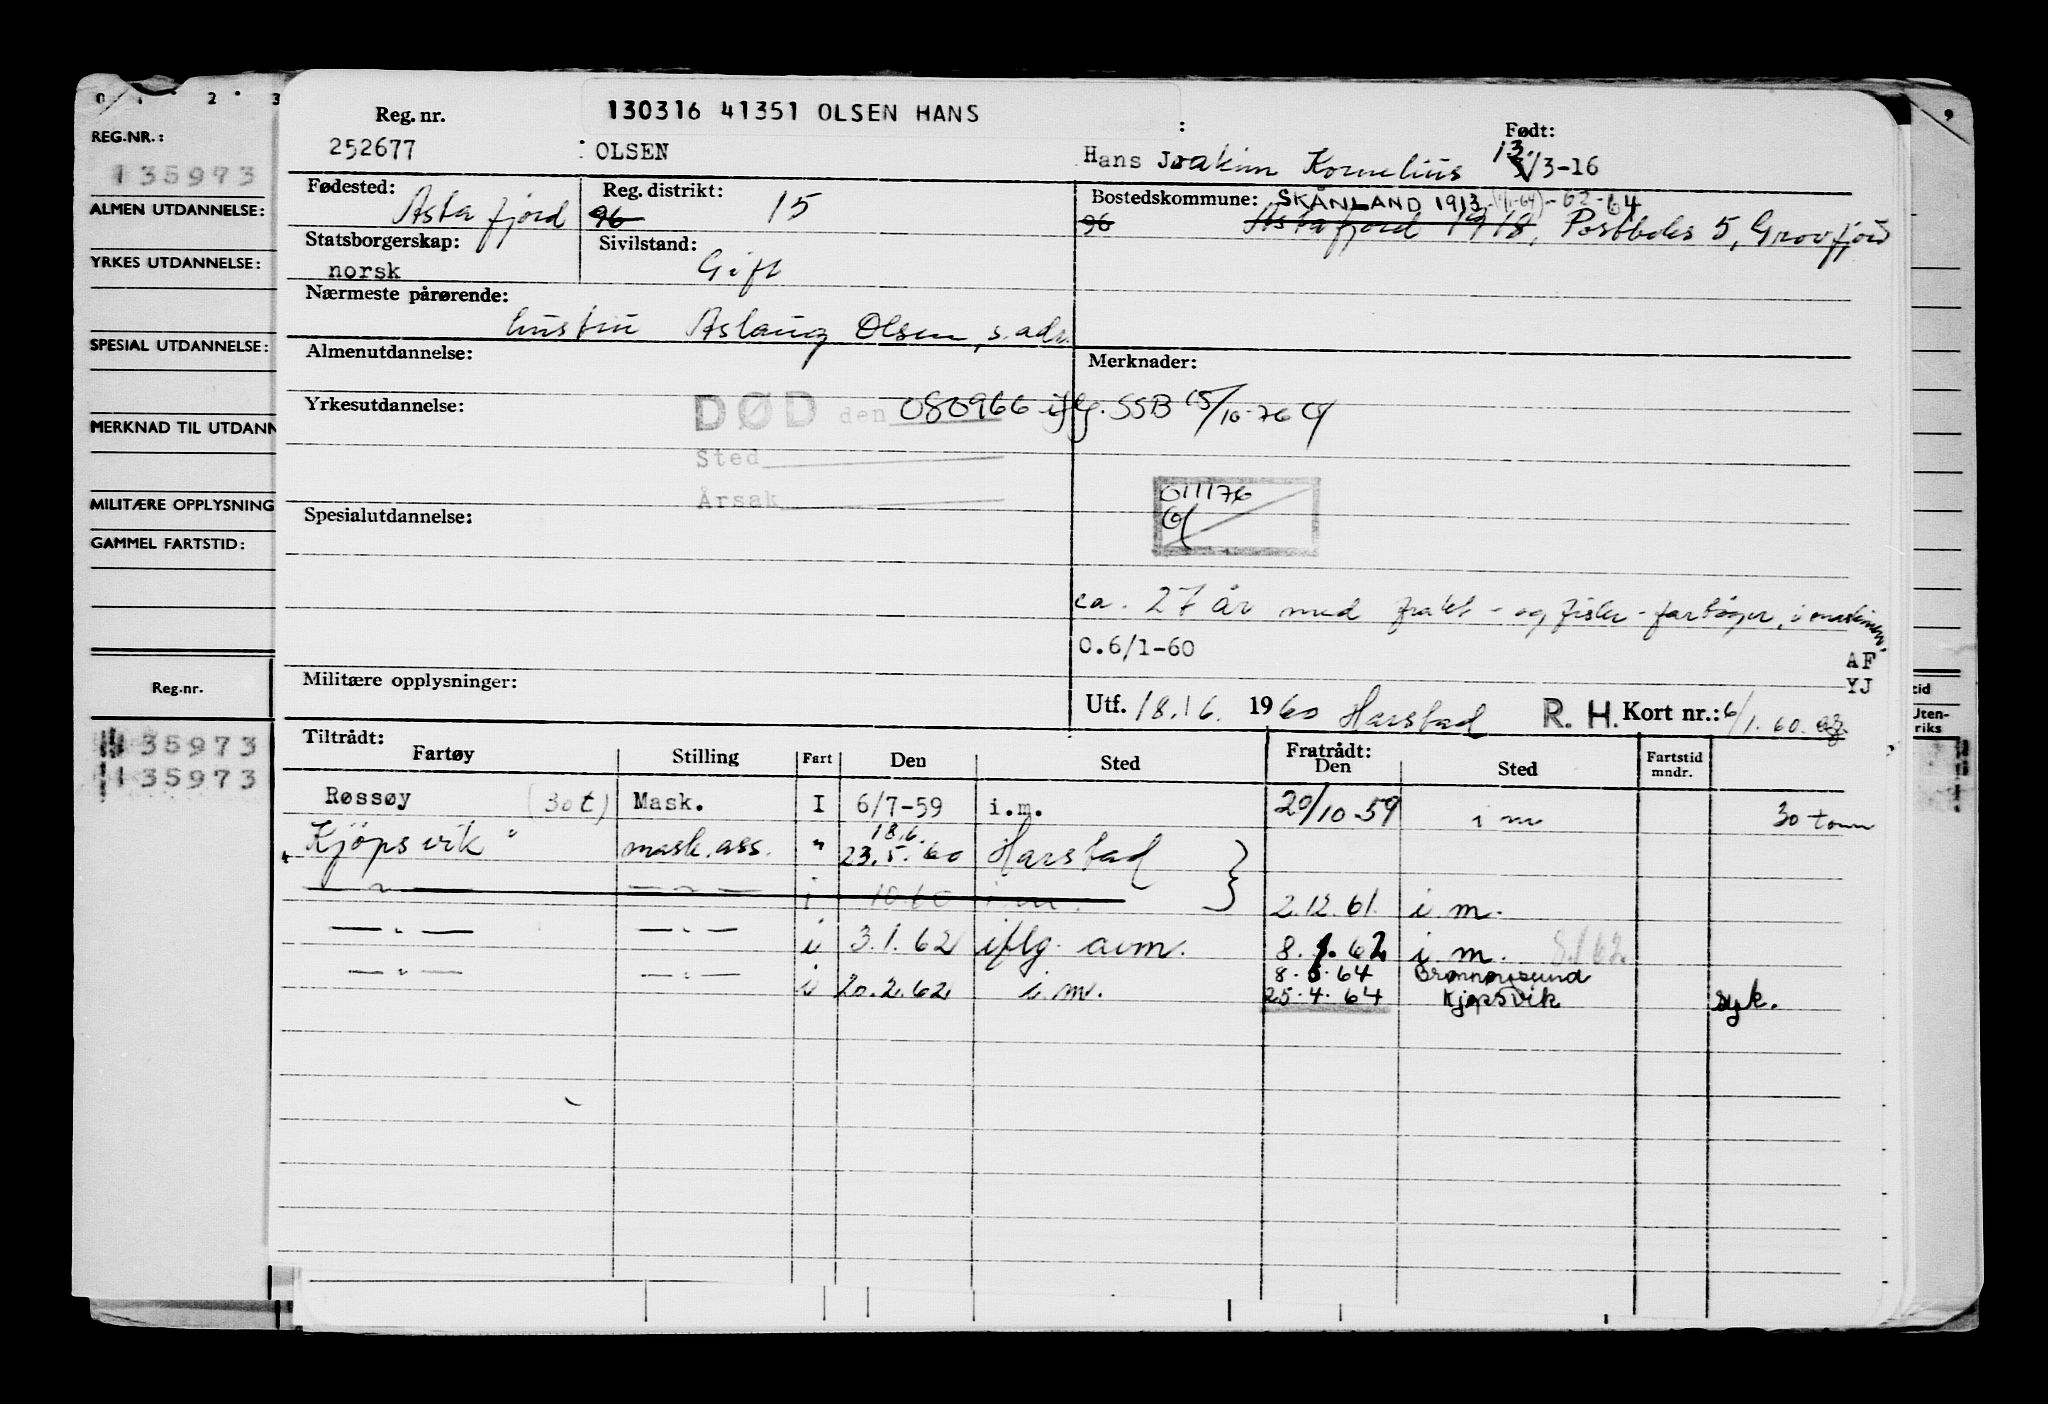 0 1 2 3 9
REG.NR.:
135973
ALMEN UTDANNELSE:
YRKES UTDANNELSE:
SPESIAL UTDANNELSE:
MERKNAD TIL UTDANN
MILITÆRE OPPLYSNING
GAMMEL FARTSTID:
Reg.nr.
135973
135973
130316 41351 OLSEN HANS
Reg. nr.
252677
OLSEN
Hans Joakim Kornelius
Født:
13/3-16
Fødested:
Astafjord
Reg. distrikt:
96 15
Bostedskommune: SKÅNLAND 1913 (1/1-64) - 62-64
96 Astafjord 1918, Postboks 5, Grovfjord
Statsborgerskap:
norsk
Sivilstand:
Gift
Nærmeste pårørende:
hustru Aslaug Olsen, s. adr.
Almenutdannelse:
Merknader:
Yrkesutdannelse:
DØD den 080966 iflg. SSB 15/10-76
Sted
Årsak
011176
Spesialutdannelse:
ca. 27 år med frakt- og fiske-fartøyer, i maskinen,
0.6/1-60
AF
YJ
Militære opplysninger:
Utf. 18.16. 1960 Harstad R. H. Kort nr.: 6/1.60.
Tiltrådt:
Fartøy Stilling Fart Den Sted Fratrådt: Den Sted Fartstid mndr.
tid
Uten-
riks
Røssøy (30t) Mask. I 6/7-59 i.m. 20/10-59 i m 30 tonn
18.6.
"Kjöpsvik" mask.ass. " 23.5.60 Harstad
— " — — " — i 10.60 i m. 2.12.61. i m.
— " — — " — i 3.1.62 iflg. avm. 8.1.62 i m. 8.1.62.
8.3.64 Brønnøysund
— " — — " — i 20.2.62 i.m. 25.4.64 Kjøpsvik syk.